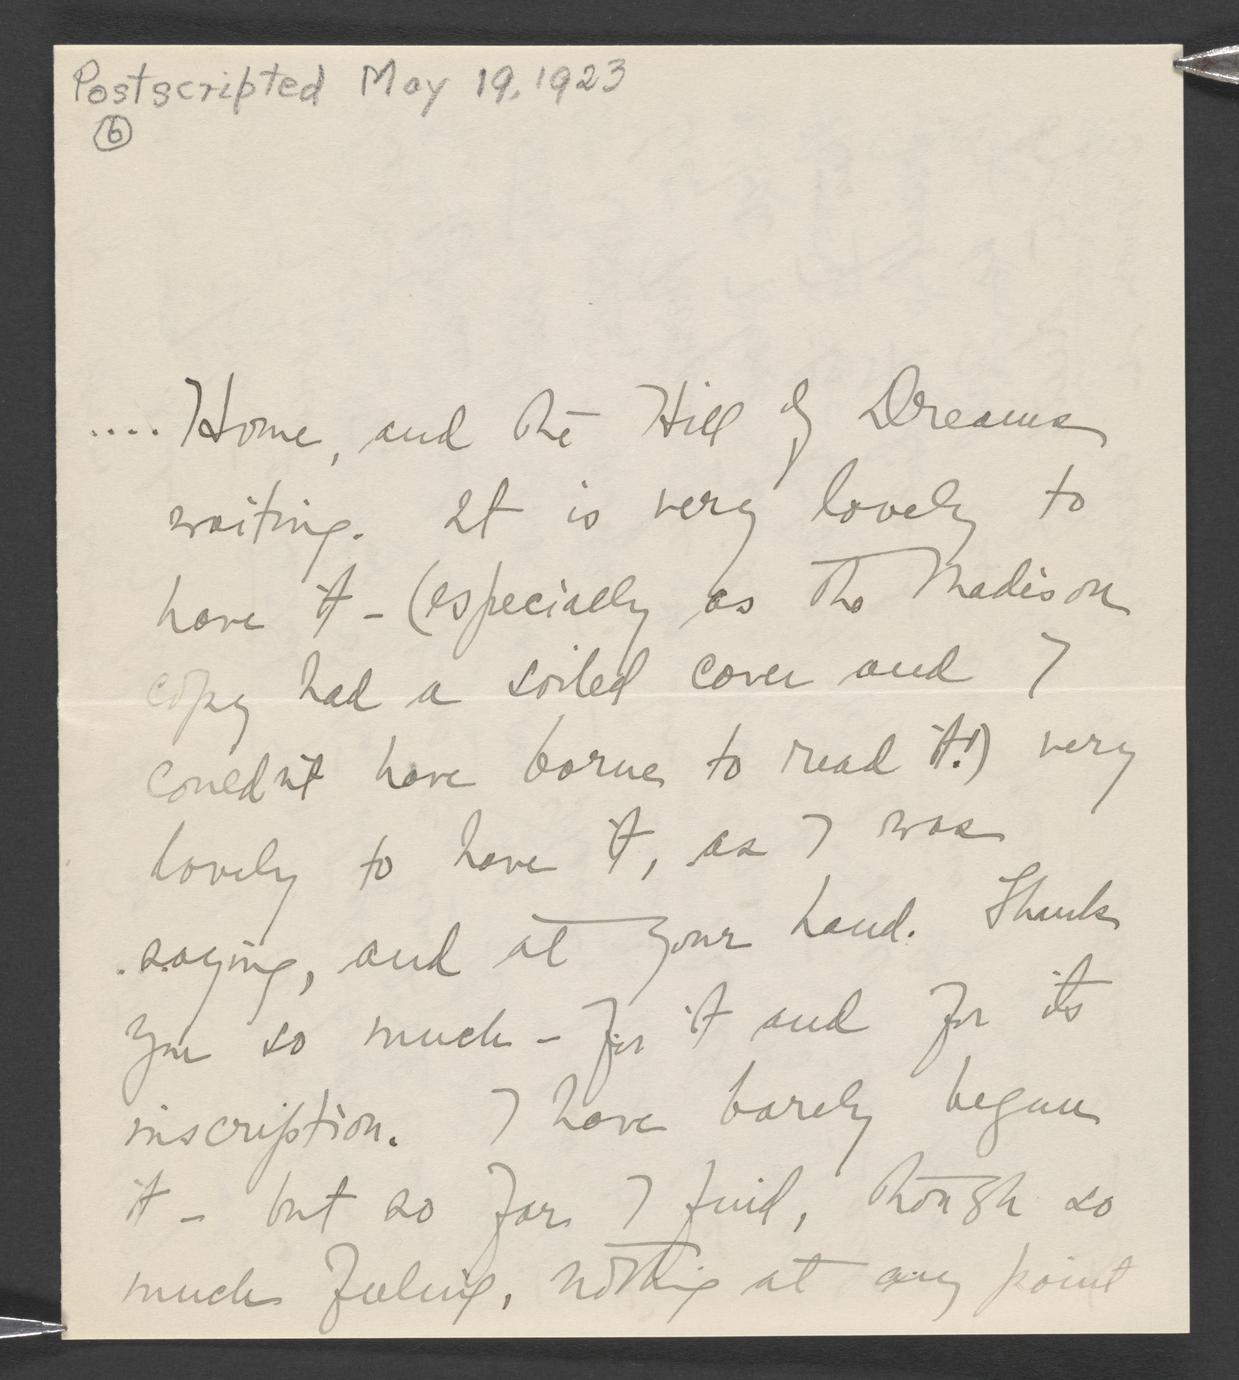 Postscripted May 19, 1923
6
.... Home, and the Hill of Dreams
waiting. It is very lovely to
have it - (especially as the Madison
copy had a soiled cover and I
couldn't have borne to read it!) very
lovely to have it, as I was
saying, and at your hand. Thank
you so much - for it and for its
inscription. I have barely begun
it - but so far I find, though so
much feeling, nothing at any point